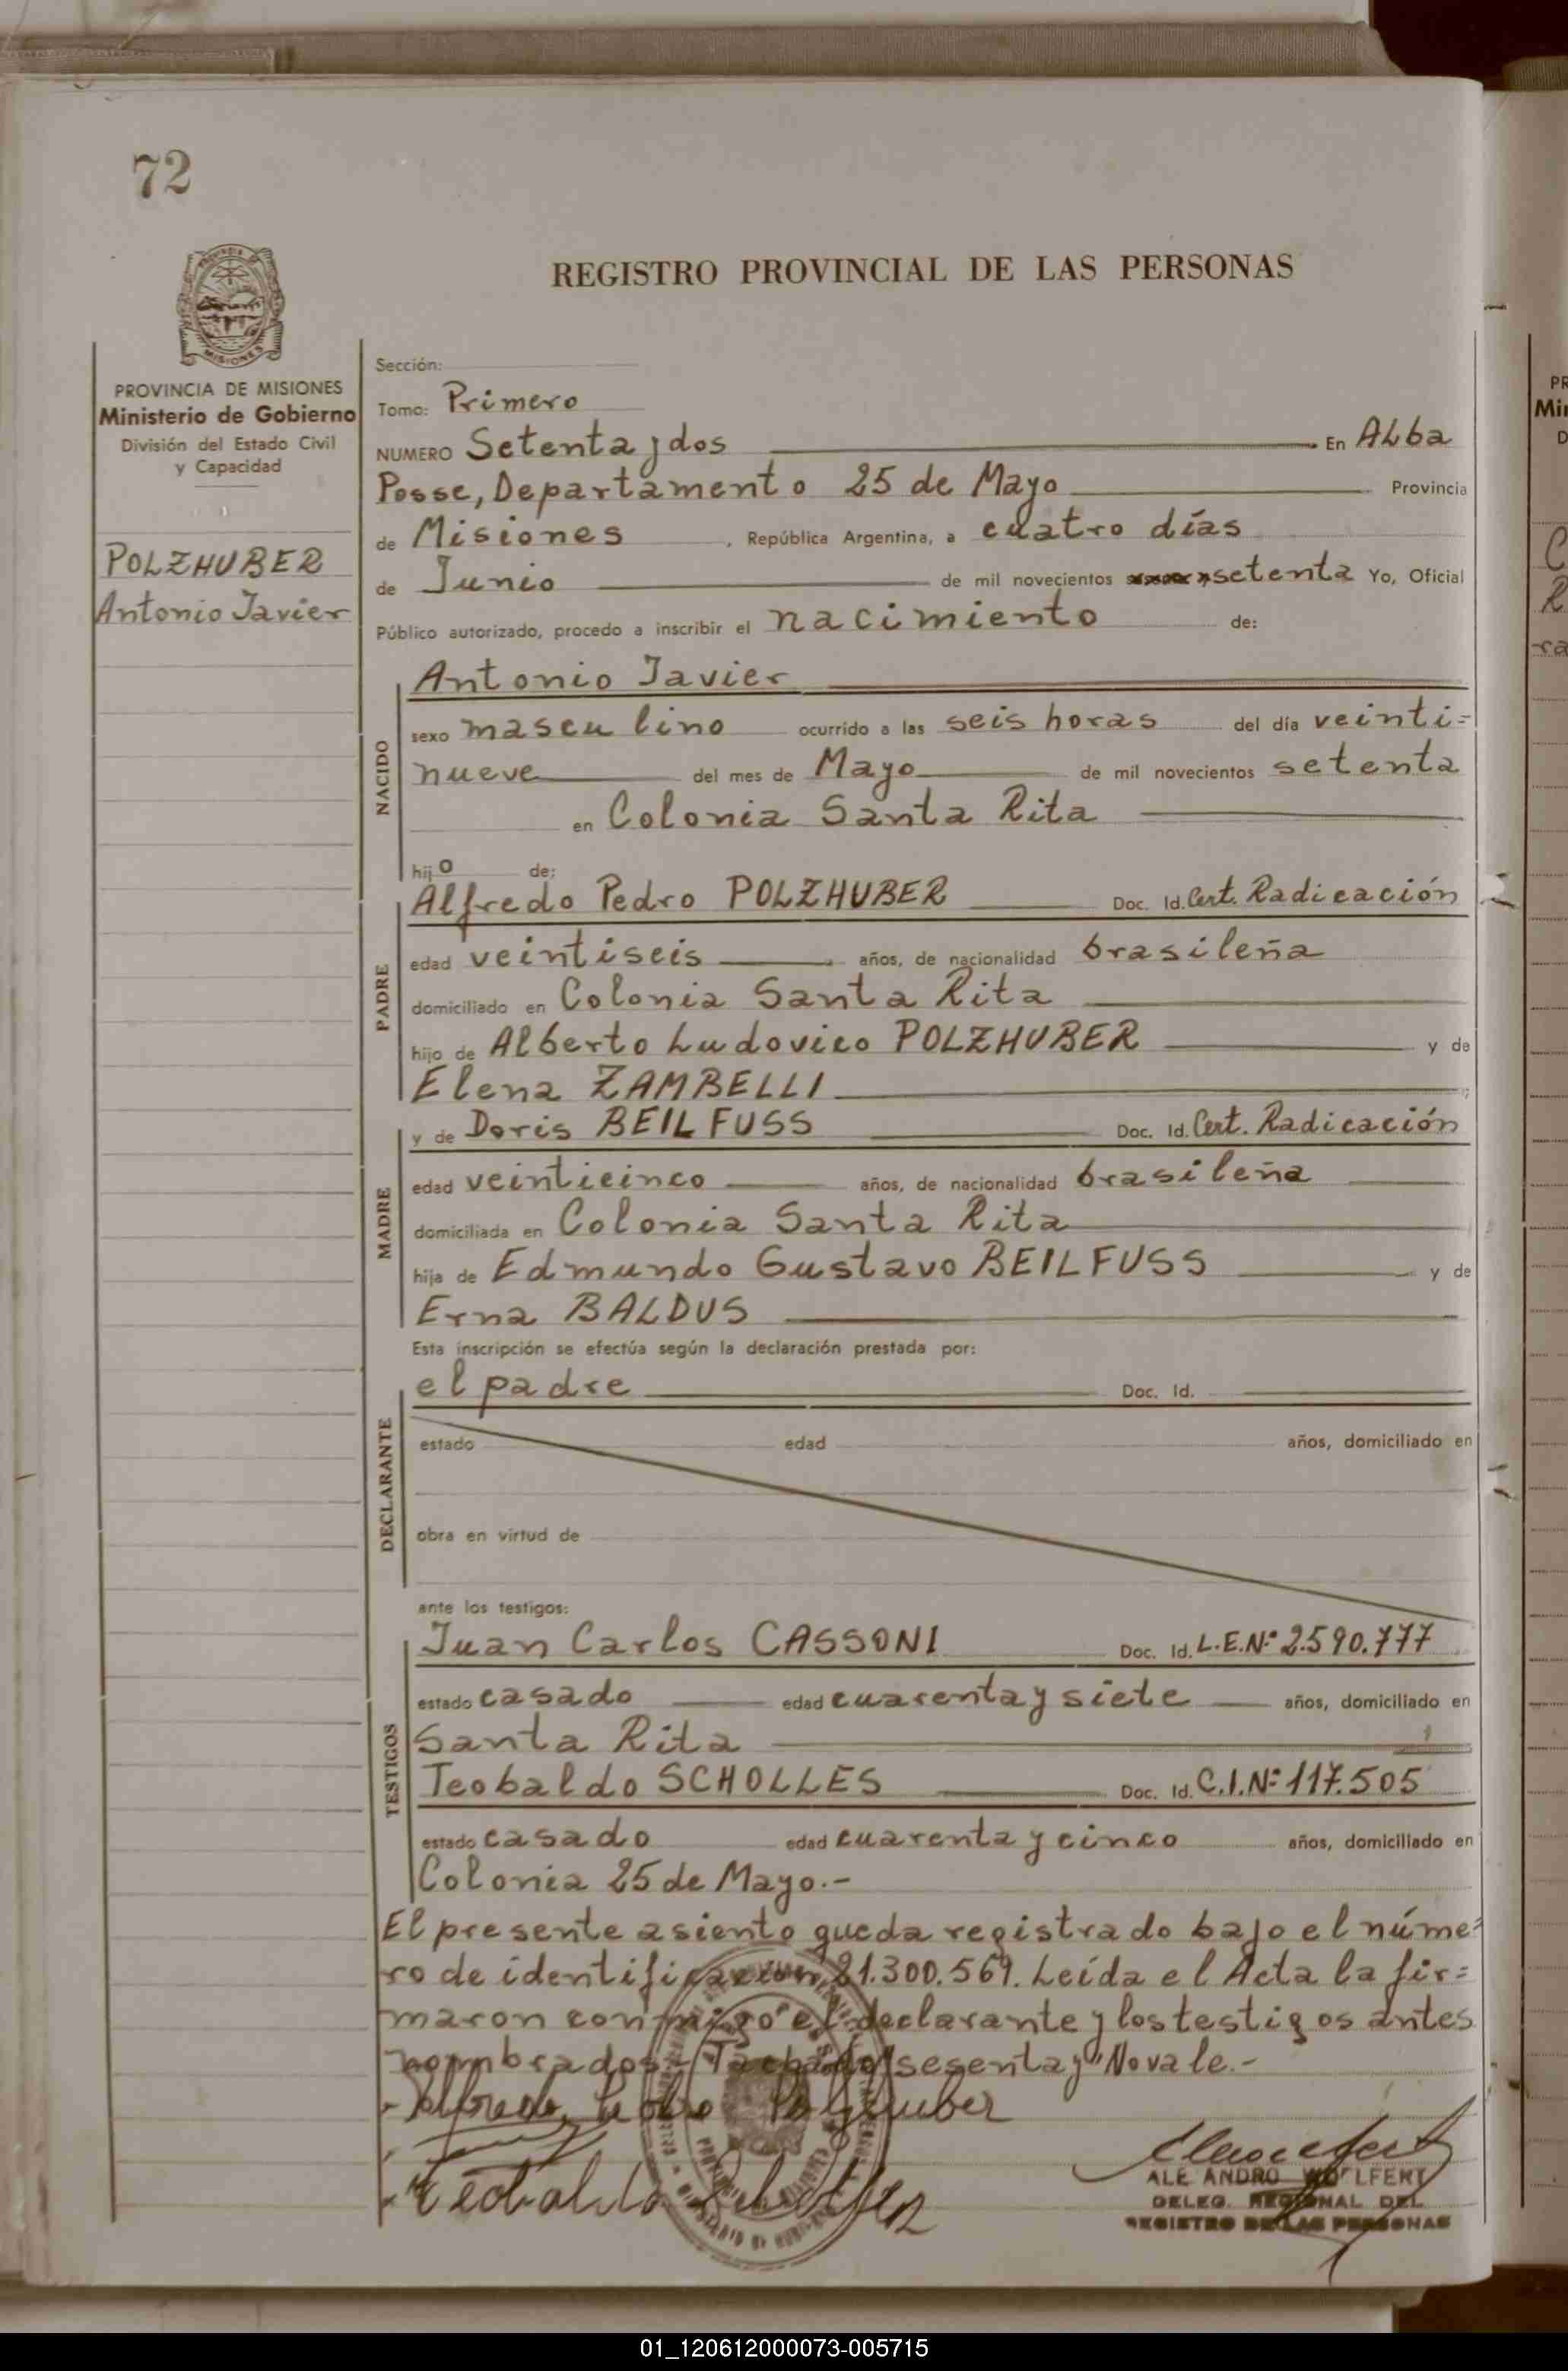 72
REGISTRO PROVINCIAL DE LAS PERSONAS
MISIONES
PROVINCIA DE MISIONES
Ministerio de Gobierno
División del Estado Civil
y Capacidad
POLZHUBER
Antonio Javier
Sección:
Tomo: Primero
NUMERO Setenta y dos En Alba
Posse, Departamento 25 de Mayo Provincia
de Misiones, República Argentina, a cuatro días
de Junio de mil novecientos setenta Yo, Oficial
Público autorizado, procedo a inscribir el nacimiento de:
NACIDO
Antonio Javier
sexo masculino ocurrido a las seis horas del día veinti=
nueve del mes de Mayo de mil novecientos setenta
en Colonia Santa Rita
hijo de:
PADRE
Alfredo Pedro POLZHUBER Doc. Id. Cert. Radicación
edad veintiseis años, de nacionalidad brasileña
domiciliado en Colonia Santa Rita
hijo de Alberto Ludovico POLZHUBER y de
Elena ZAMBELLI
MADRE
y de Doris BEILFUSS Doc. Id. Cert. Radicación
edad veinticinco años, de nacionalidad brasileña
domiciliada en Colonia Santa Rita
hija de Edmundo Gustavo BEILFUSS y de
Erna BALDUS
Esta inscripción se efectúa según la declaración prestada por:
DECLARANTE
el padre Doc. Id.
estado edad años, domiciliado en
obra en virtud de
ante los testigos:
TESTIGOS
Juan Carlos CASSONI Doc. Id. L.E.Nº 2.590.777
estado casado edad cuarenta y siete años, domiciliado en
Santa Rita
Teobaldo SCHOLLES Doc. Id. C.I.Nº 117.505
estado casado edad cuarenta y cinco años, domiciliado en
Colonia 25 de Mayo.-
El presente asiento queda registrado bajo el núme=
ro de identificación 21.300.569. Leída el Acta la fir=
maron conmigo el declarante y los testigos antes
nombrados.- Tachado "sesenta y" No vale.-
Alfredo Pedro Polzhuber
ALEJANDRO WOELFERT
DELEG. REGIONAL DEL
REGISTRO DE LAS PERSONAS
01_120612000073-005715